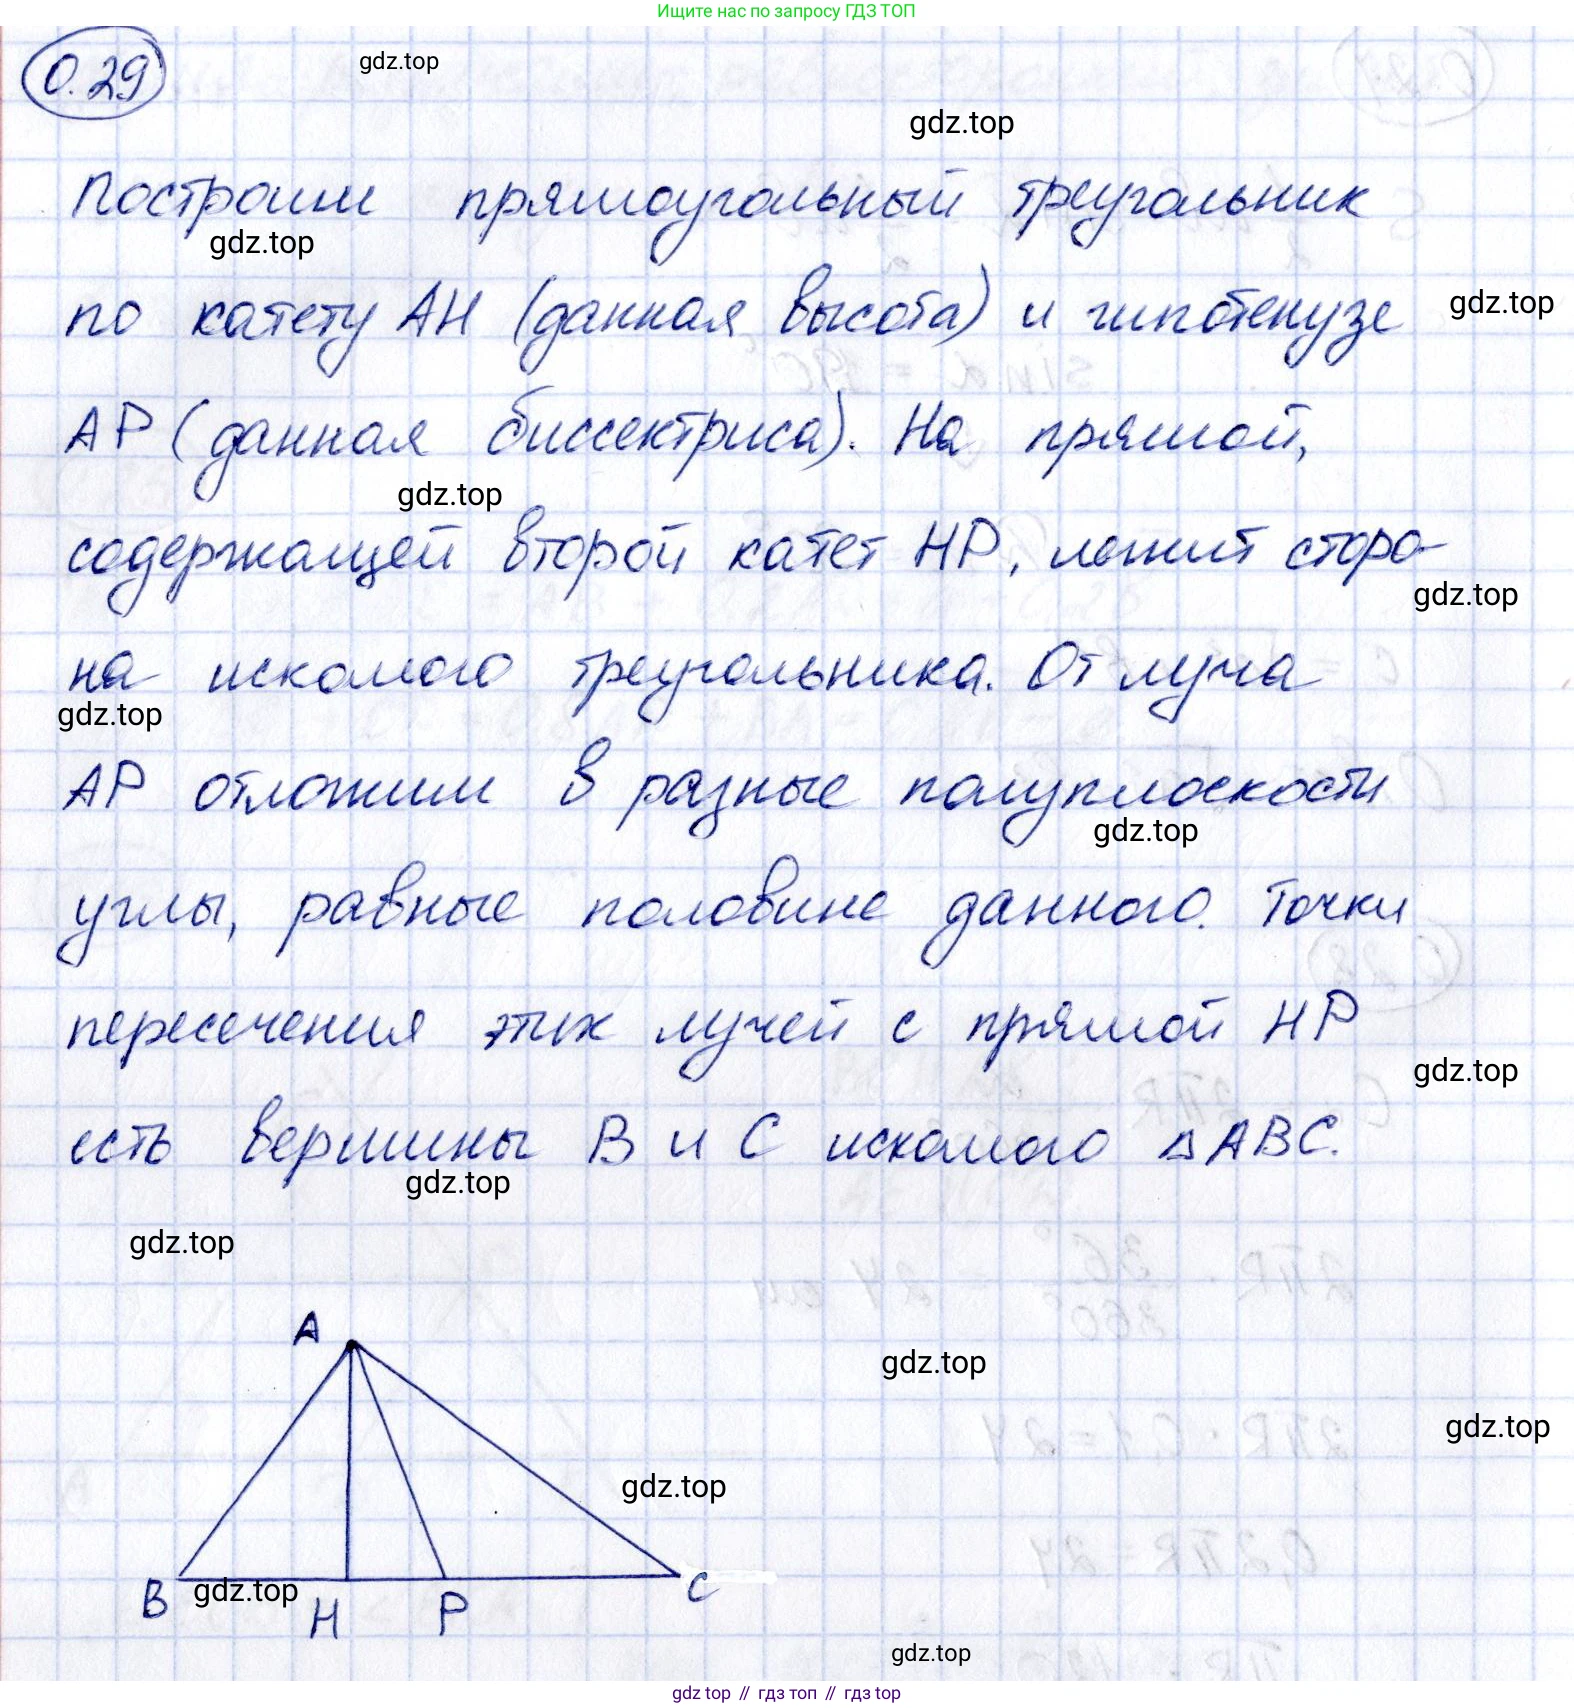 Ищите нас по запросу ГДЗ ТОП
0.29
gdz.top
gdz.top
Построим прямоугольный треугольник
gdz.top
по катету AH (данная высота) и гипотенузе
gdz.top
AP (данная биссектриса). На прямой,
gdz.top
содержащей второй катет HP, лежит сторо-
gdz.top
на искомого треугольника. От луча
gdz.top
AP отложим в разные полуплоскости
gdz.top
углы, равные половине данного. Точки
пересечения этих лучей с прямой HP
gdz.top
есть вершины B и C искомого ΔABC.
gdz.top
gdz.top
A
gdz.top
gdz.top
gdz.top
B
gdz.top
H
P
C
gdz.top
gdz top // гдз топ // гдз top